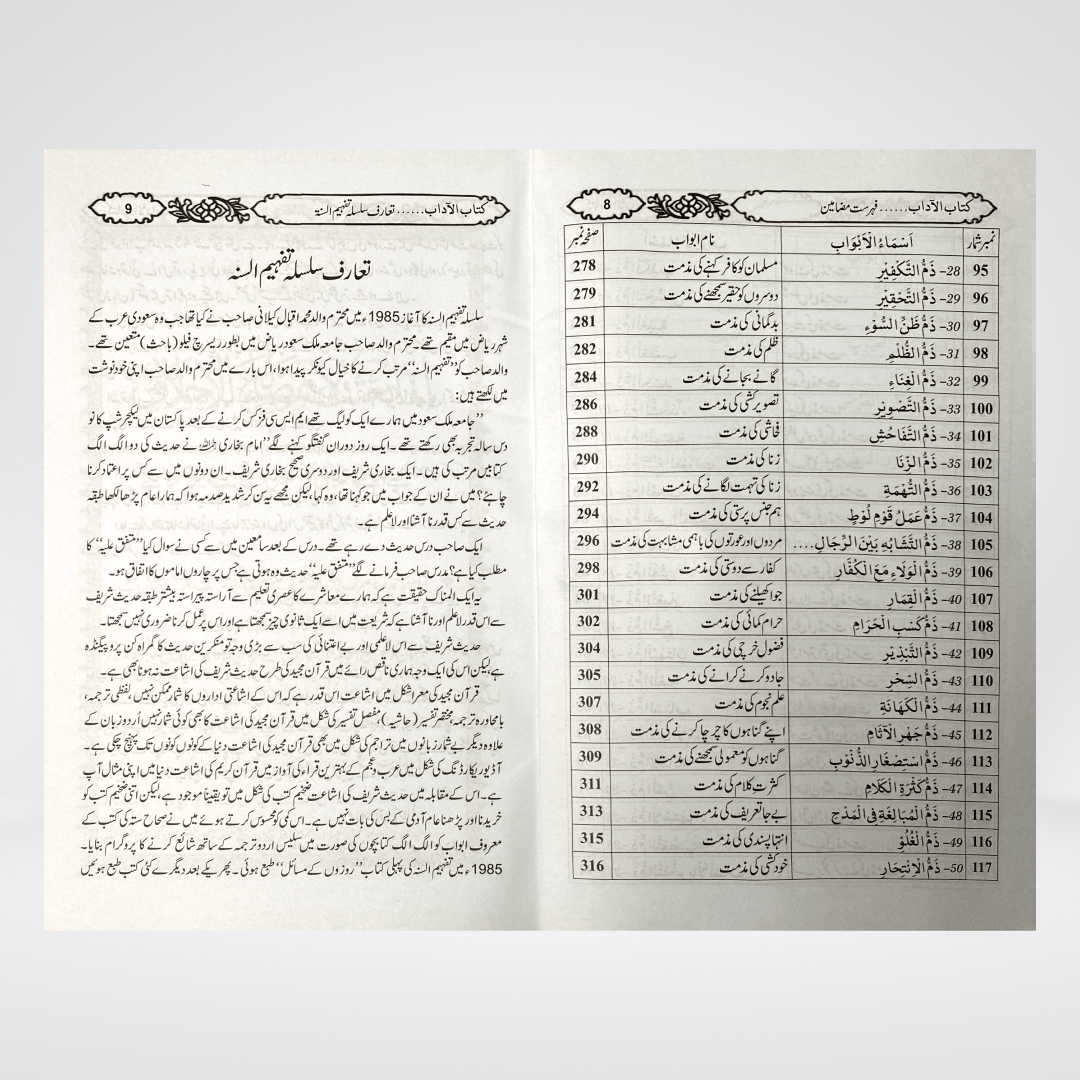 کتاب الآداب...... فہرست مضامین 8
نمبر شمار اَسْمَاءُ الْاَبْوَابِ نام ابواب صفحہ نمبر
95 28- ذَمُّ التَّكْفِيْرِ مسلمان کو کافر کہنے کی مذمت 278
96 29- ذَمُّ التَّحْقِيْرِ دوسروں کو حقیر سمجھنے کی مذمت 279
97 30- ذَمُّ ظَنِّ السُّوْءِ بدگمانی کی مذمت 281
98 31- ذَمُّ الظُّلْمِ ظلم کی مذمت 282
99 32- ذَمُّ الْغِنَاءِ گانے بجانے کی مذمت 284
100 33- ذَمُّ التَّصْوِيْرِ تصویر کشی کی مذمت 286
101 34- ذَمُّ التَّفَاحُشِ فحاشی کی مذمت 288
102 35- ذَمُّ الزِّنَا زنا کی مذمت 290
103 36- ذَمُّ التُّهْمَةِ زنا کی تہمت لگانے کی مذمت 292
104 37- ذَمُّ عَمَلِ قَوْمِ لُوْطٍ ہم جنس پرستی کی مذمت 294
105 38- ذَمُّ التَّشَابُهِ بَيْنَ الرِّجَالِ.... مردوں اور عورتوں کی باہمی مشابہت کی مذمت 296
106 39- ذَمُّ الْوَلَاءِ مَعَ الْكُفَّارِ کفار سے دوستی کی مذمت 298
107 40- ذَمُّ الْقِمَارِ جوا کھیلنے کی مذمت 301
108 41- ذَمُّ كَسْبِ الْحَرَامِ حرام کمائی کی مذمت 302
109 42- ذَمُّ التَّبْذِيْرِ فضول خرچی کی مذمت 304
110 43- ذَمُّ السِّحْرِ جادو کرنے کرانے کی مذمت 305
111 44- ذَمُّ الْكَهَانَةِ علم نجوم کی مذمت 307
112 45- ذَمُّ جَهْرِ الْآثَامِ اپنے گناہوں کا چرچا کرنے کی مذمت 308
113 46- ذَمُّ اسْتِصْغَارِ الذُّنُوْبِ گناہوں کو معمولی سمجھنے کی مذمت 309
114 47- ذَمُّ كَثْرَةِ الْكَلَامِ کثرتِ کلام کی مذمت 311
115 48- ذَمُّ الْمُبَالَغَةِ فِى الْمَدْحِ بے جا تعریف کی مذمت 313
116 49- ذَمُّ الْغُلُوِّ انتہا پسندی کی مذمت 315
117 50- ذَمُّ الْاِنْتِحَارِ خودکشی کی مذمت 316
کتاب الآداب...... تعارف سلسلہ تفہیم السنۃ 9
تعارف سلسلہ تفہیم السنہ
سلسلہ تفہیم السنہ کا آغاز 1985ء میں محترم والد محمد اقبال کیلانی صاحب نے کیا تھا جب وہ سعودی عرب کے
شہر ریاض میں مقیم تھے۔ محترم والد صاحب جامعہ ملک سعود ریاض میں بطور ریسرچ فیلو (باحث) متعین تھے۔
والد صاحب کو ”تفہیم السنہ“ مرتب کرنے کا خیال کیونکر پیدا ہوا، اس بارے میں محترم والد صاحب اپنی خود نوشت
میں لکھتے ہیں:
”جامعہ ملک سعود میں ہمارے ایک کولیگ تھے ایم ایس سی فزکس کرنے کے بعد پاکستان میں لیکچرشپ کا نو
دس سالہ تجربہ بھی رکھتے تھے۔ ایک روز دوران گفتگو کہنے لگے ”امام بخاری رحمہ اللہ نے حدیث کی دو الگ الگ
کتابیں مرتب کی ہیں۔ ایک بخاری شریف اور دوسری صحیح بخاری شریف۔ ان دونوں میں سے کس پر اعتماد کرنا
چاہئے؟ میں نے ان کے جواب میں جو کہنا تھا، وہ کہا، لیکن مجھے یہ سن کر شدید صدمہ ہوا کہ ہمارا عام پڑھا لکھا طبقہ
حدیث سے کس قدر نا آشنا اور لاعلم ہے۔
ایک صاحب درس حدیث دے رہے تھے۔ درس کے بعد سامعین میں سے کسی نے سوال کیا ”متفق علیہ“ کا
مطلب کیا ہے؟ مدرس صاحب فرمانے لگے ”متفق علیہ“ حدیث وہ ہوتی ہے جس پر چاروں اماموں کا اتفاق ہو۔
یہ ایک المناک حقیقت ہے کہ ہمارے معاشرے کا عصری تعلیم سے آراستہ پیراستہ بیشتر طبقہ حدیث شریف
سے اس قدر لاعلم اور نا آشنا ہے کہ شریعت میں اسے ایک ثانوی چیز سمجھتا ہے اور اس پر عمل کرنا ضروری نہیں سمجھتا۔
حدیث شریف سے اس لاعلمی اور بے اعتنائی کی سب سے بڑی وجہ تو منکرین حدیث کا گمراہ کن پروپیگنڈہ
ہے، لیکن اس کی ایک وجہ ہماری ناقص رائے میں قرآن مجید کی طرح حدیث شریف کی اشاعت نہ ہونا بھی ہے۔
قرآن مجید کی معرا شکل میں اشاعت اس قدر ہے کہ اس کے اشاعتی اداروں کا شمار ممکن نہیں، لفظی ترجمہ،
بامحاورہ ترجمہ، مختصر تفسیر (حاشیہ)، مفصل تفسیر کی شکل میں قرآن مجید کی اشاعت کا بھی کوئی شمار نہیں اُردو زبان کے
علاوہ دیگر بے شمار زبانوں میں تراجم کی شکل میں بھی قرآن مجید کی اشاعت دنیا کے کونوں کونوں تک پہنچ چکی ہے۔
آڈیو ریکارڈنگ کی شکل میں عرب و عجم کے بہترین قراء کی آواز میں قرآن کریم کی اشاعت دنیا میں اپنی مثال آپ
ہے۔ اس کے مقابلہ میں حدیث شریف کی اشاعت ضخیم کتب کی شکل میں تو یقیناً موجود ہے، لیکن اتنی ضخیم کتب کو
خریدنا اور پڑھنا عام آدمی کے بس کی بات نہیں ہے۔ اس کمی کو محسوس کرتے ہوئے میں نے صحاح ستہ کی کتب کے
معروف ابواب کو الگ الگ کتابچوں کی صورت میں سلیس اردو ترجمہ کے ساتھ شائع کرنے کا پروگرام بنایا۔
1985ء میں تفہیم السنہ کی پہلی کتاب ”روزوں کے مسائل“ طبع ہوئی۔ پھر یکے بعد دیگرے کئی کتب طبع ہوئیں